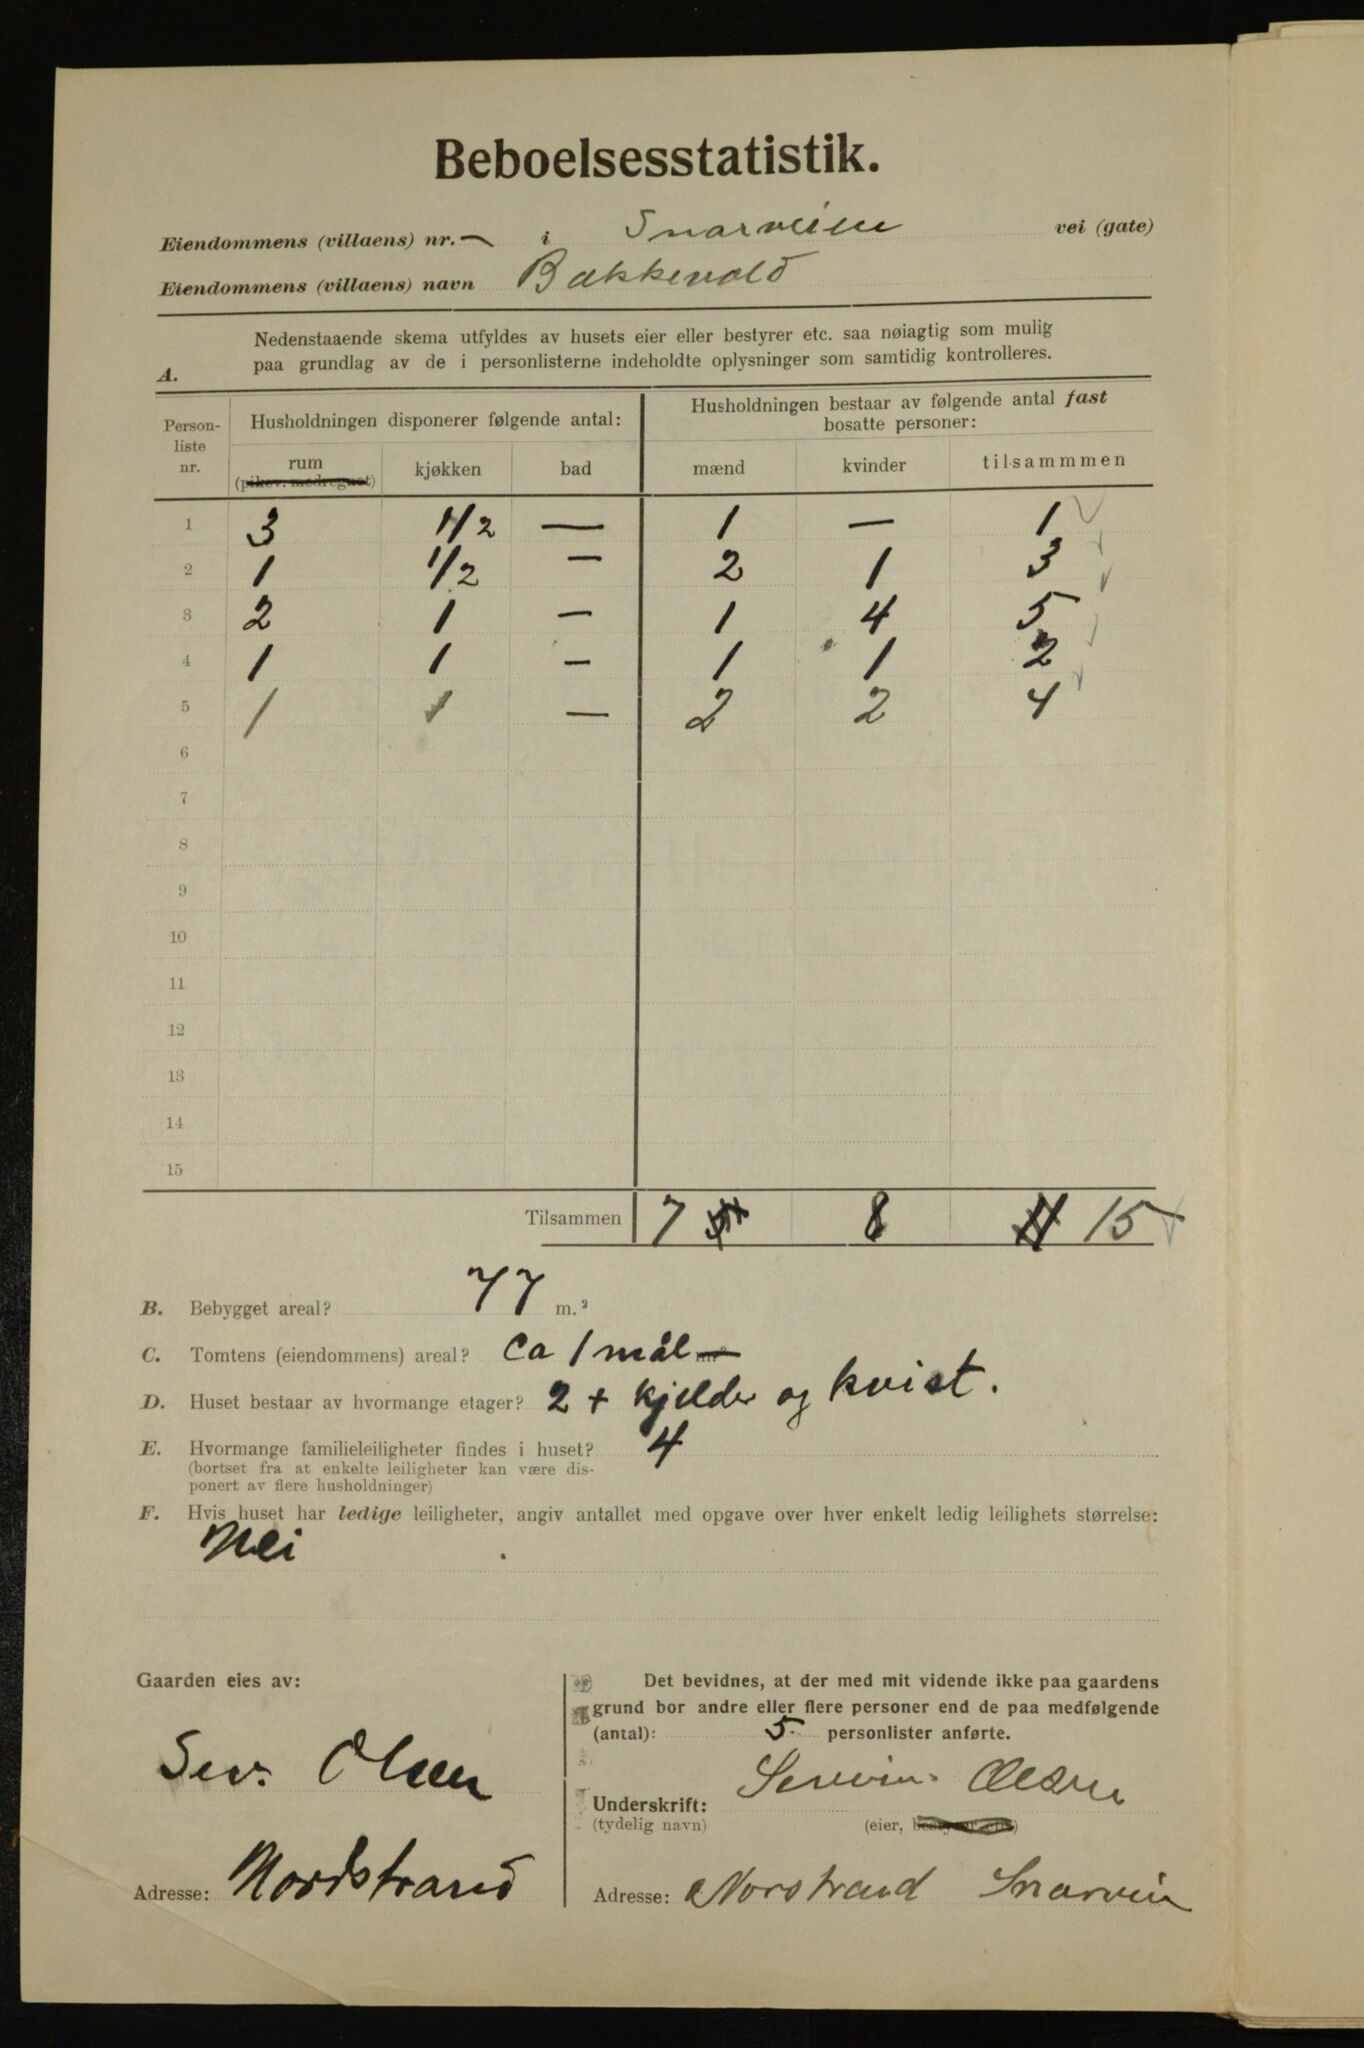 Beboelsesstatistik.
Eiendommens (villaens) nr. — i Snarveien vei (gate)
Eiendommens (villaens) navn Bakkevold
Nedenstaaende skema utfyldes av husets eier eller bestyrer etc. saa nøiagtig som mulig
paa grundlag av de i personlisterne indeholdte oplysninger som samtidig kontrolleres.
A.
Person-
liste
nr.
Husholdningen disponerer følgende antal:
Husholdningen bestaar av følgende antal fast
bosatte personer:
rum
(pikev. medregnet)
kjøkken bad mænd kvinder tilsammmen
1 3 1/2 — 1 — 1
2 1 1/2 — 2 1 3
3 2 1 — 1 4 5
4 1 1 — 1 1 2
5 1 1 — 2 2 4
6
7
8
9
10
11
12
13
14
15
Tilsammen 7 8 11 15
B. Bebygget areal? 77 m.²
C. Tomtens (eiendommens) areal? Ca 1 mål
D. Huset bestaar av hvormange etager? 2 + kjelder og kvist.
E. Hvormange familieleiligheter findes i huset? 4
(bortset fra at enkelte leiligheter kan være dis-
ponert av flere husholdninger)
F. Hvis huset har ledige leiligheter, angiv antallet med opgave over hver enkelt ledig leilighets størrelse:
Nei
Gaarden eies av:
Sev. Olsen
Adresse: Nordstrand
Det bevidnes, at der med mit vidende ikke paa gaardens
grund bor andre eller flere personer end de paa medfølgende
(antal): 5 personlister anførte.
Underskrift: Severin Olsen
(tydelig navn) (eier, bestyrer etc.)
Adresse: Norstrand Snarvein